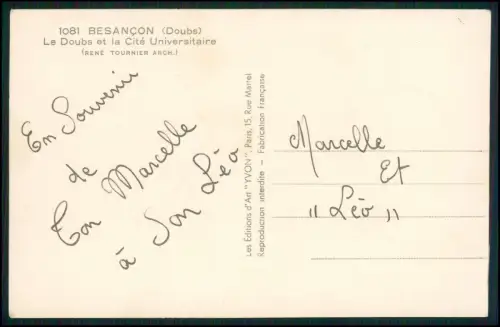 1081 BESANÇON (Doubs)
Le Doubs et la Cité Universitaire
(RENÉ TOURNIER ARCH.)
En Souvenir
de
Ton Marcelle
à Son Léo
Les Editions d'Art "YVON", Paris, 15, Rue Martel
Reproduction interdite - Fabrication Française
Marcelle
Et
" Léo "